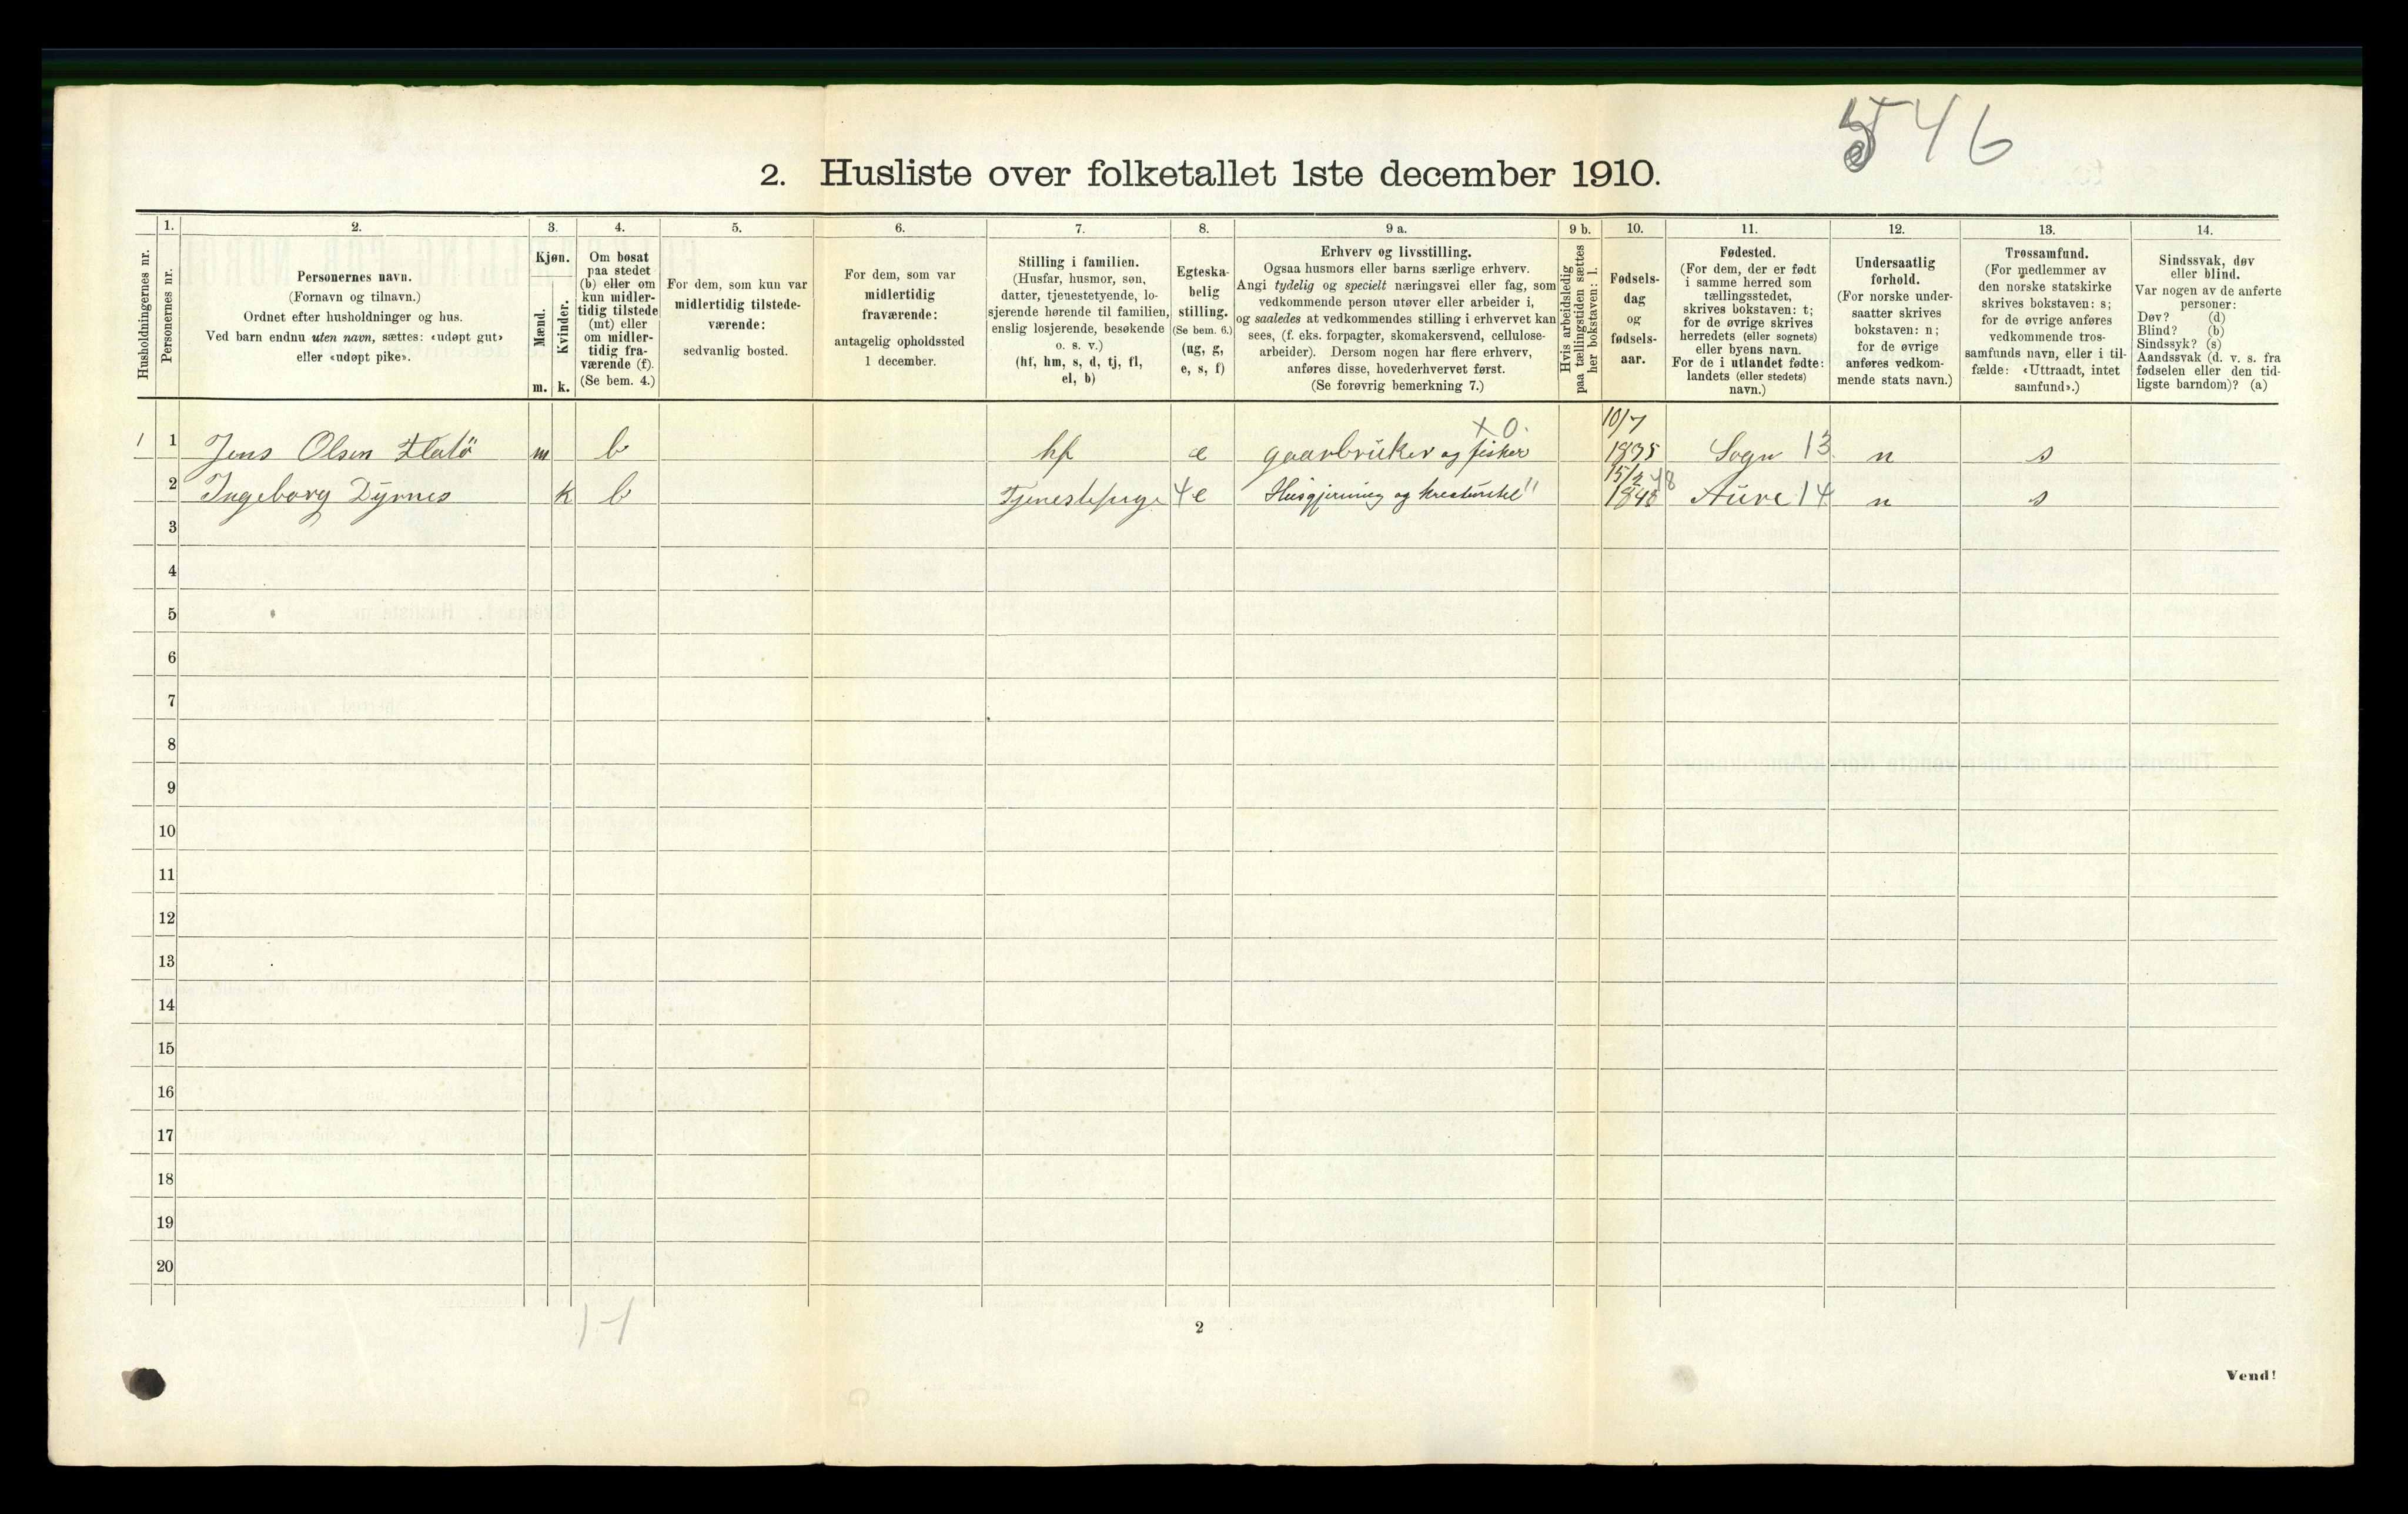 546
2. Husliste over folketallet 1ste december 1910.
Husholdningernes nr.
1.
Personernes nr.
2.
Personernes navn.
(Fornavn og tilnavn.)
Ordnet efter husholdninger og hus.
Ved barn endnu uten navn, sættes: «udøpt gut»
eller «udøpt pike».
3.
Kjøn.
Mænd.
m.
Kvinder.
k.
4.
Om bosat
paa stedet
(b) eller om
kun midler-
tidig tilstede
(mt) eller
om midler-
tidig fra-
værende (f).
(Se bem. 4.)
5.
For dem, som kun var
midlertidig tilstede-
værende:
sedvanlig bosted.
6.
For dem, som var
midlertidig
fraværende:
antagelig opholdssted
1 december.
7.
Stilling i familien.
(Husfar, husmor, søn,
datter, tjenestetyende, lo-
sjerende hørende til familien,
enslig losjerende, besøkende
o. s. v.)
(hf, hm, s, d, tj, fl,
el, b)
8.
Egteska-
belig
stilling.
(Se bem. 6.)
(ug, g,
e, s, f)
9 a.
Erhverv og livsstilling.
Ogsaa husmors eller barns særlige erhverv.
Angi tydelig og specielt næringsvei eller fag, som
vedkommende person utøver eller arbeider i,
og saaledes at vedkommendes stilling i erhvervet kan
sees, (f. eks. forpagter, skomakersvend, cellulose-
arbeider). Dersom nogen har flere erhverv,
anføres disse, hovederhvervet først.
(Se forøvrig bemerkning 7.)
9 b.
Hvis arbeidsledig
paa tællingstiden sættes
her bokstaven: l.
10.
Fødsels-
dag
og
fødsels-
aar.
11.
Fødested.
(For dem, der er født
i samme herred som
tællingsstedet,
skrives bokstaven: t;
for de øvrige skrives
herredets (eller sognets)
eller byens navn.
For de i utlandet fødte:
landets (eller stedets)
navn.)
12.
Undersaatlig
forhold.
(For norske under-
saatter skrives
bokstaven: n;
for de øvrige
anføres vedkom-
mende stats navn.)
13.
Trossamfund.
(For medlemmer av
den norske statskirke
skrives bokstaven: s;
for de øvrige anføres
vedkommende tros-
samfunds navn, eller i til-
fælde: «Uttraadt, intet
samfund».)
14.
Sindssvak, døv
eller blind.
Var nogen av de anførte
personer:
Døv? (d)
Blind? (b)
Sindssyk? (s)
Aandssvak (d. v. s. fra
fødselen eller den tid-
ligste barndom)? (a)
x 0. 10/7
1 1 Jens Olsen Flatö m b hf e gaarbrüker og fisker 1835 Sogn 13 n s
15/2 48
2 Ingeborg Dÿrnes k b Tjenestepige 4 e Husgjerning og kreaturstel " 1848 Aüre 14 n s
3
4
5
6
7
8
9
10
11
12
13
14
15
16
17
18
19
20
1-1
2
Vend!